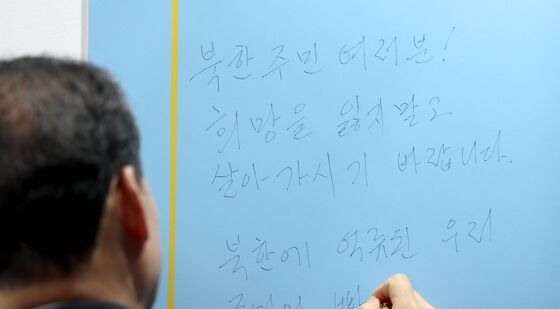 북한주민 여러분!
희망을 잃지말고
살아가시기 바랍니다.
북한에 억류된 우리